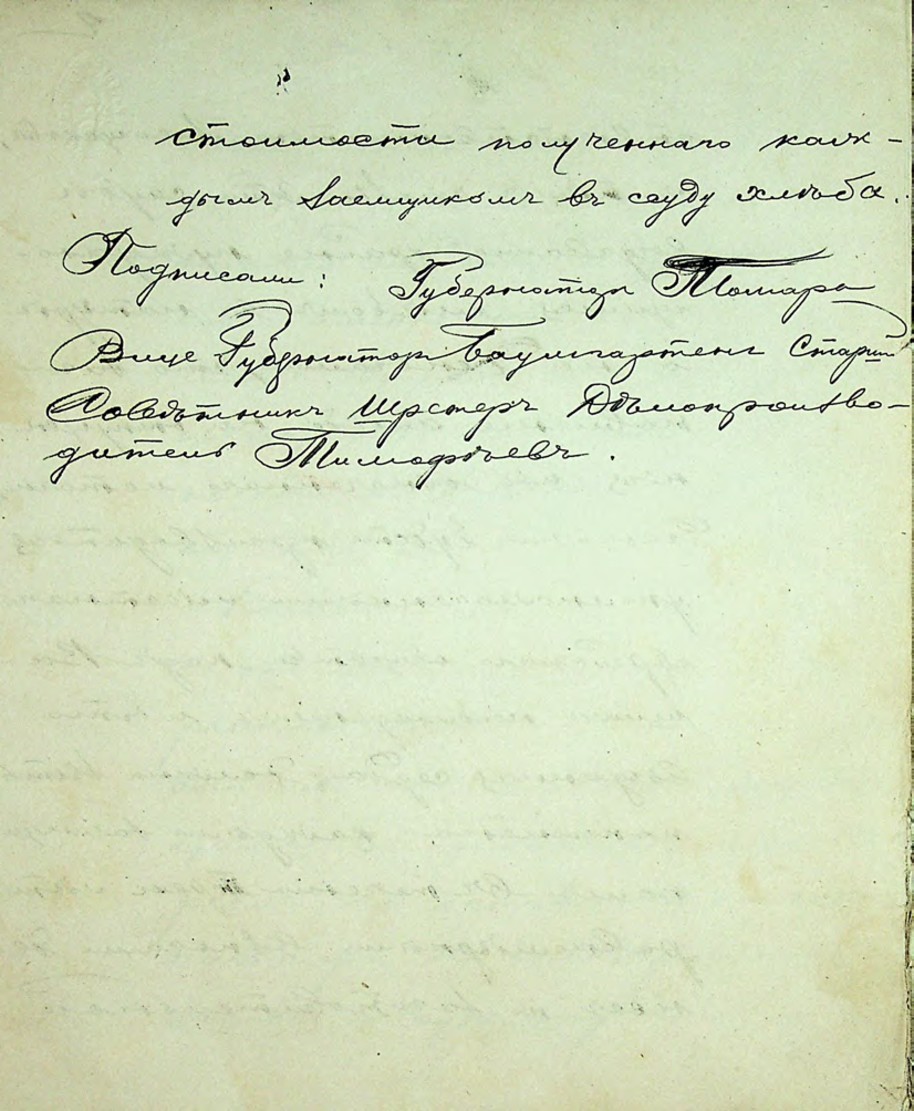 стоимости полученнаго каж-
дымъ заемщикомъ въ ссуду хлѣба.
Подписали: Губернаторъ Томара
Вице Губернаторъ Баумгартенъ Старшій
Совѣтникъ Шрстеръ Дѣлопроизво-
дитель Тимофѣевъ.